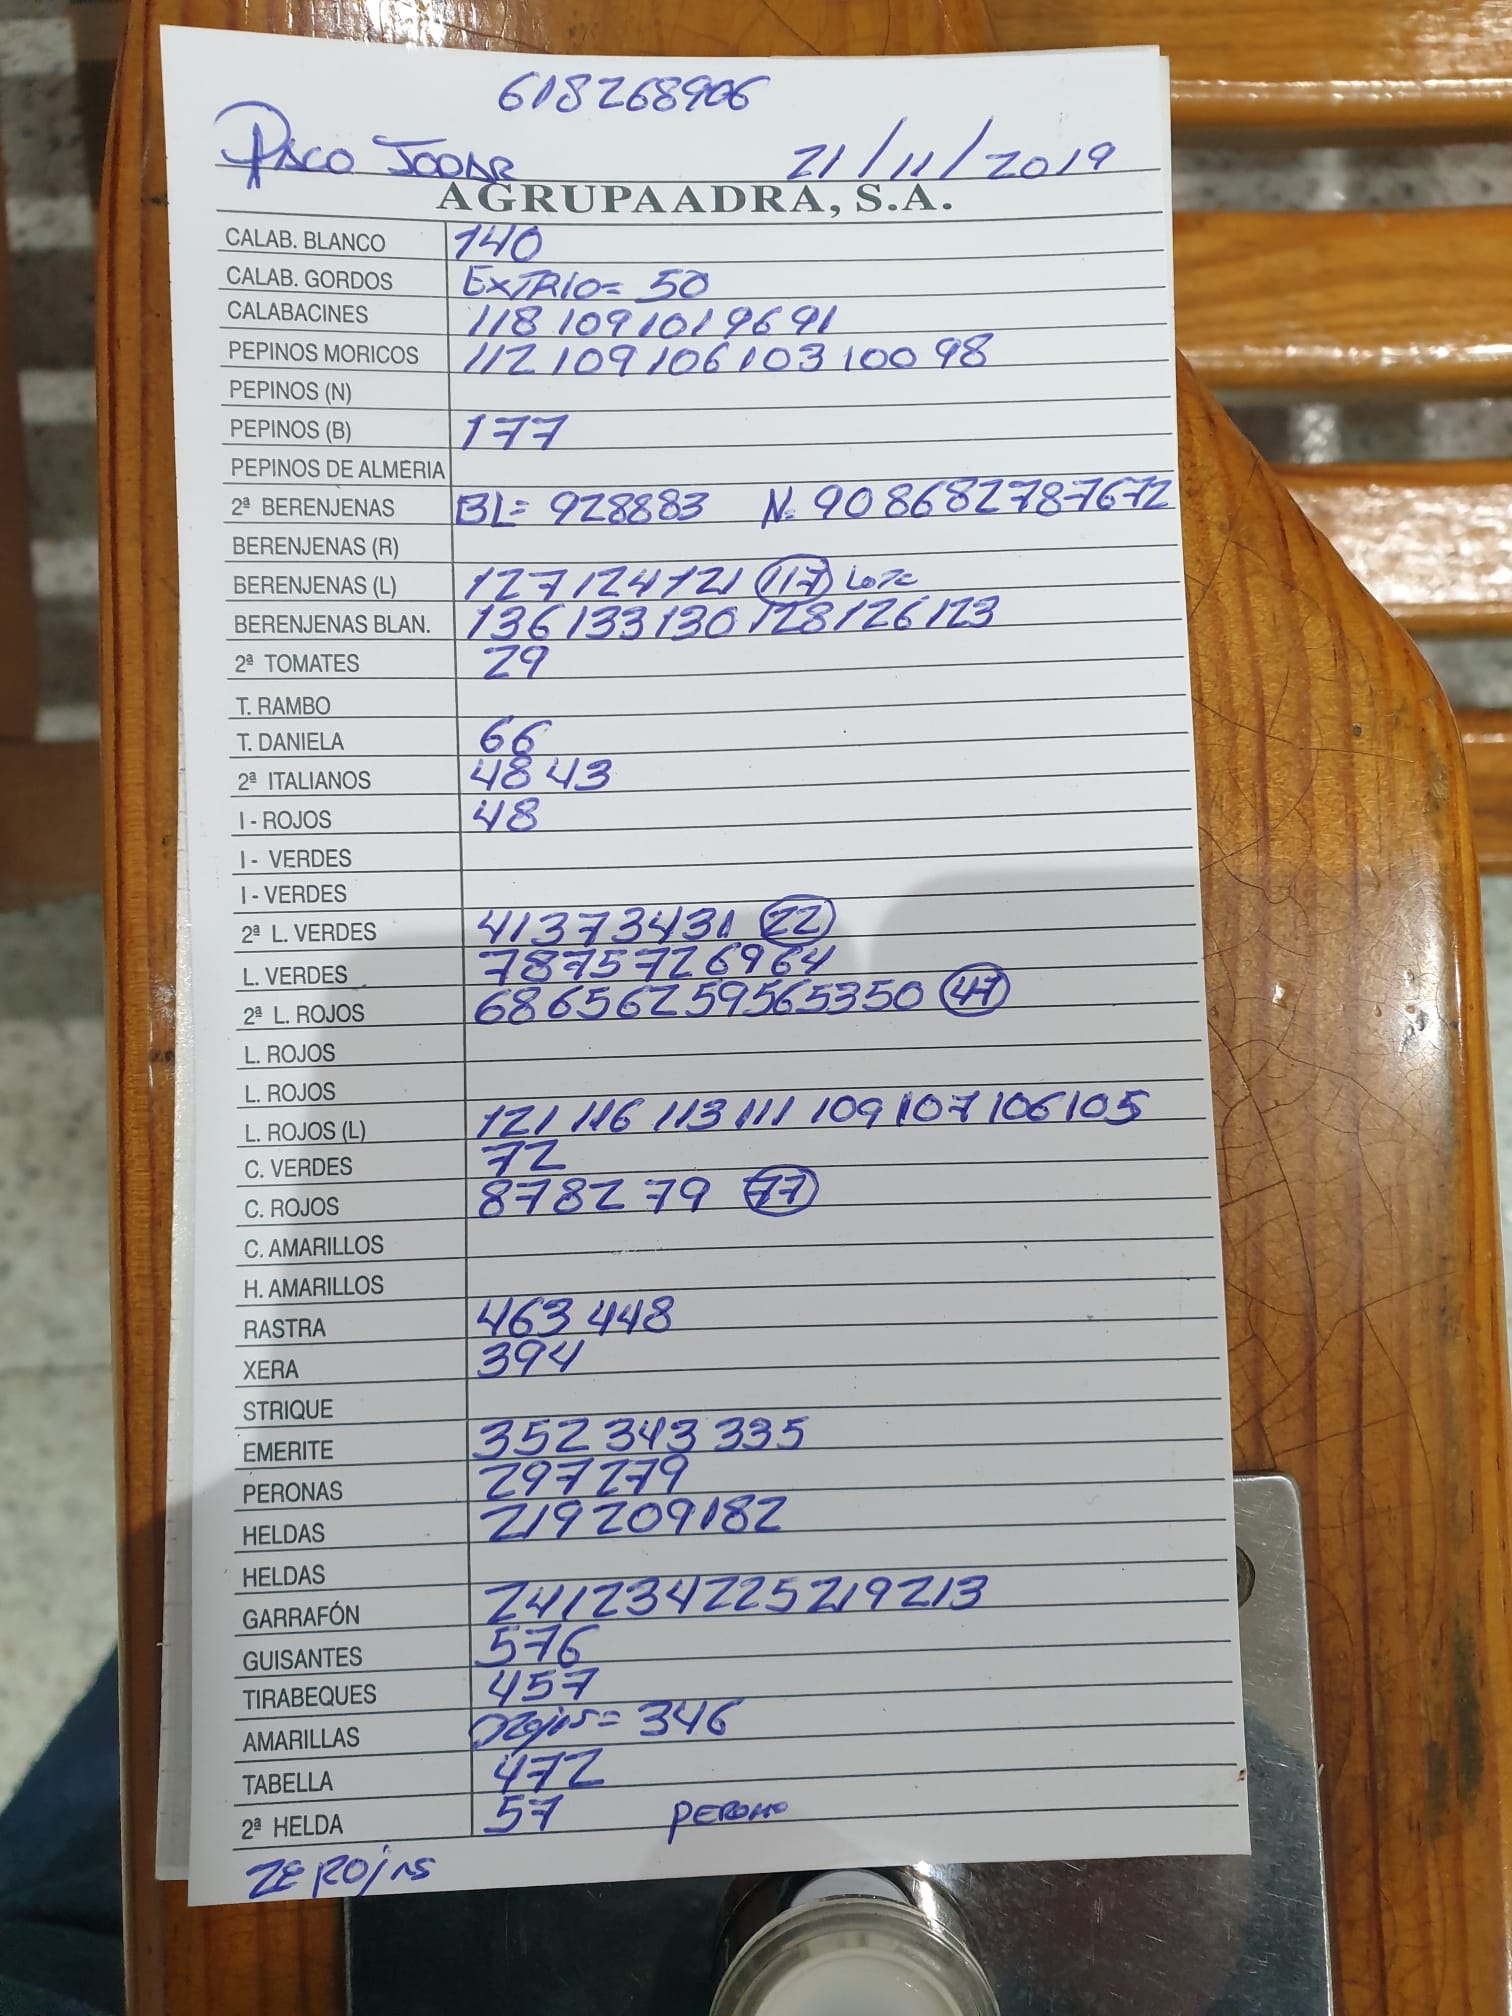 618268906
PACO JODAR 21/11/2019
AGRUPAADRA, S.A.
CALAB. BLANCO 140
CALAB. GORDOS EXTRIO= 50
CALABACINES 118 109 101 96 91
PEPINOS MORICOS 112 109 106 103 100 98
PEPINOS (N)
PEPINOS (B) 177
PEPINOS DE ALMERIA
2ª BERENJENAS BL= 92 88 83 N= 90 86 82 78 76 72
BERENJENAS (R)
BERENJENAS (L) 127 124 121 117
BERENJENAS BLAN. 136 133 130 128 126 123
2ª TOMATES 29
T. RAMBO
T. DANIELA 66
2ª ITALIANOS 48 43
I - ROJOS 48
I - VERDES
I - VERDES
2ª L. VERDES 41 37 34 31 22
L. VERDES 78 75 72 69 64
2ª L. ROJOS 68 65 62 59 56 53 50 47
L. ROJOS
L. ROJOS
L. ROJOS (L) 121 116 113 111 109 107 106 105
C. VERDES 72
C. ROJOS 87 82 79 77
C. AMARILLOS
H. AMARILLOS
RASTRA 463 448
XERA 394
STRIQUE
EMERITE 352 343 335
PERONAS 297 279
HELDAS 219 209 182
HELDAS
GARRAFÓN 241 234 225 219 213
GUISANTES 576
TIRABEQUES 457
AMARILLAS = 346
TABELLA 472
2ª HELDA 57